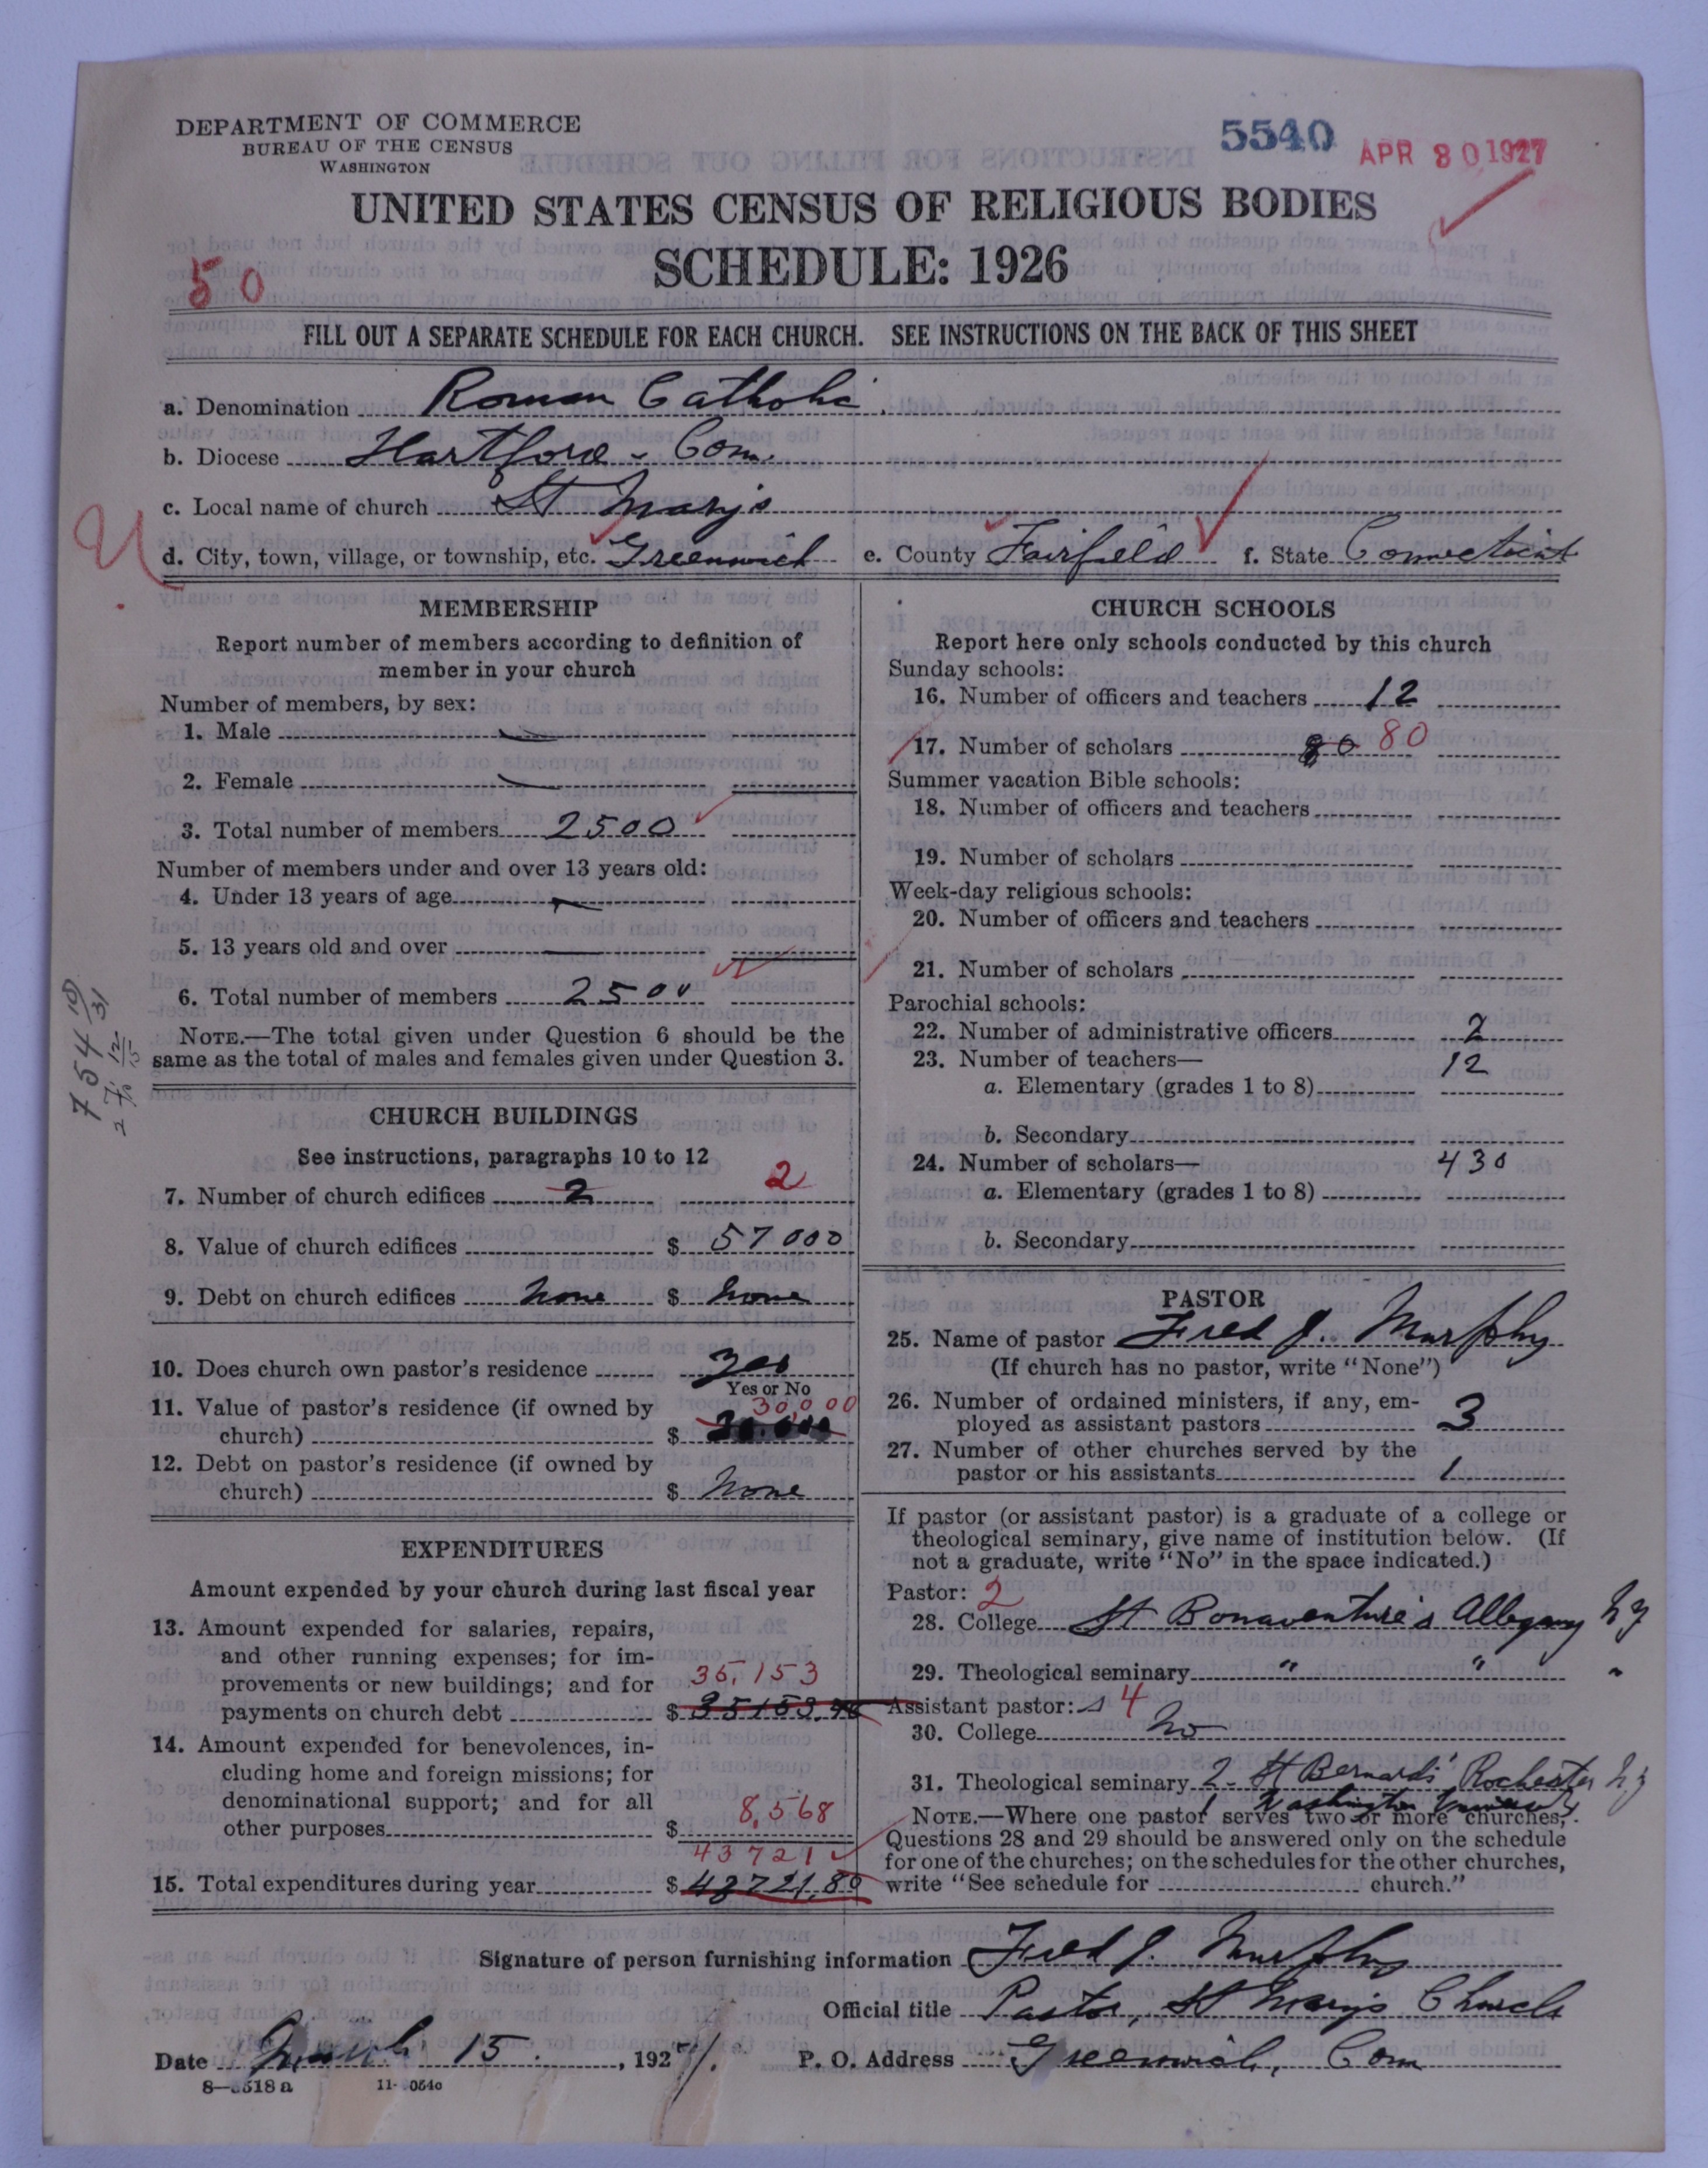 DEPARTMENT OF COMMERCE
BUREAU OF THE CENSUS
WASHINGTON
5540
APR 30 1927
UNITED STATES CENSUS OF RELIGIOUS BODIES
SCHEDULE: 1926
50
FILL OUT A SEPARATE SCHEDULE FOR EACH CHURCH. SEE INSTRUCTIONS ON THE BACK OF THIS SHEET
a. Denomination Roman Catholic
b. Diocese Hartford - Conn.
c. Local name of church St Mary's
d. City, town, village, or township, etc. Greenwich e. County Fairfield f. State Connecticut
MEMBERSHIP
Report number of members according to definition of
member in your church
Number of members, by sex:
1. Male —
2. Female —
3. Total number of members 2500
Number of members under and over 13 years old:
4. Under 13 years of age —
5. 13 years old and over —
6. Total number of members 2500
NOTE.—The total given under Question 6 should be the
same as the total of males and females given under Question 3.
754
CHURCH BUILDINGS
See instructions, paragraphs 10 to 12
7. Number of church edifices 2 2
8. Value of church edifices $ 57000
9. Debt on church edifices None $ None
10. Does church own pastor's residence Yes
Yes or No
11. Value of pastor's residence (if owned by
church) $ 30.000 30,000
12. Debt on pastor's residence (if owned by
church) $ None
EXPENDITURES
Amount expended by your church during last fiscal year
13. Amount expended for salaries, repairs,
and other running expenses; for im-
provements or new buildings; and for 35,153
payments on church debt $ 35153
14. Amount expended for benevolences, in-
cluding home and foreign missions; for
denominational support; and for all
other purposes $ 8,568
43721
15. Total expenditures during year $ 43721,89
CHURCH SCHOOLS
Report here only schools conducted by this church
Sunday schools:
16. Number of officers and teachers 12
17. Number of scholars 80 80
Summer vacation Bible schools:
18. Number of officers and teachers
19. Number of scholars
Week-day religious schools:
20. Number of officers and teachers
21. Number of scholars
Parochial schools:
22. Number of administrative officers 2
23. Number of teachers— 12
a. Elementary (grades 1 to 8)
b. Secondary
24. Number of scholars— 430
a. Elementary (grades 1 to 8)
b. Secondary
PASTOR
25. Name of pastor Fred J. Murphy
(If church has no pastor, write "None")
26. Number of ordained ministers, if any, em-
ployed as assistant pastors 3
27. Number of other churches served by the
pastor or his assistants 1
If pastor (or assistant pastor) is a graduate of a college or
theological seminary, give name of institution below. (If
not a graduate, write "No" in the space indicated.)
Pastor: 2
28. College St Bonaventure's Allegany N Y
29. Theological seminary " " "
Assistant pastor: 4
30. College No
31. Theological seminary 2 - St Bernards' Rochester N Y
1 Washington University
NOTE.—Where one pastor serves two or more churches,
Questions 28 and 29 should be answered only on the schedule
for one of the churches; on the schedules for the other churches,
write "See schedule for church."
Signature of person furnishing information Fred J. Murphy
Official title Pastor, St Mary's Church
Date March 15, 1927. P. O. Address Greenwich, Conn